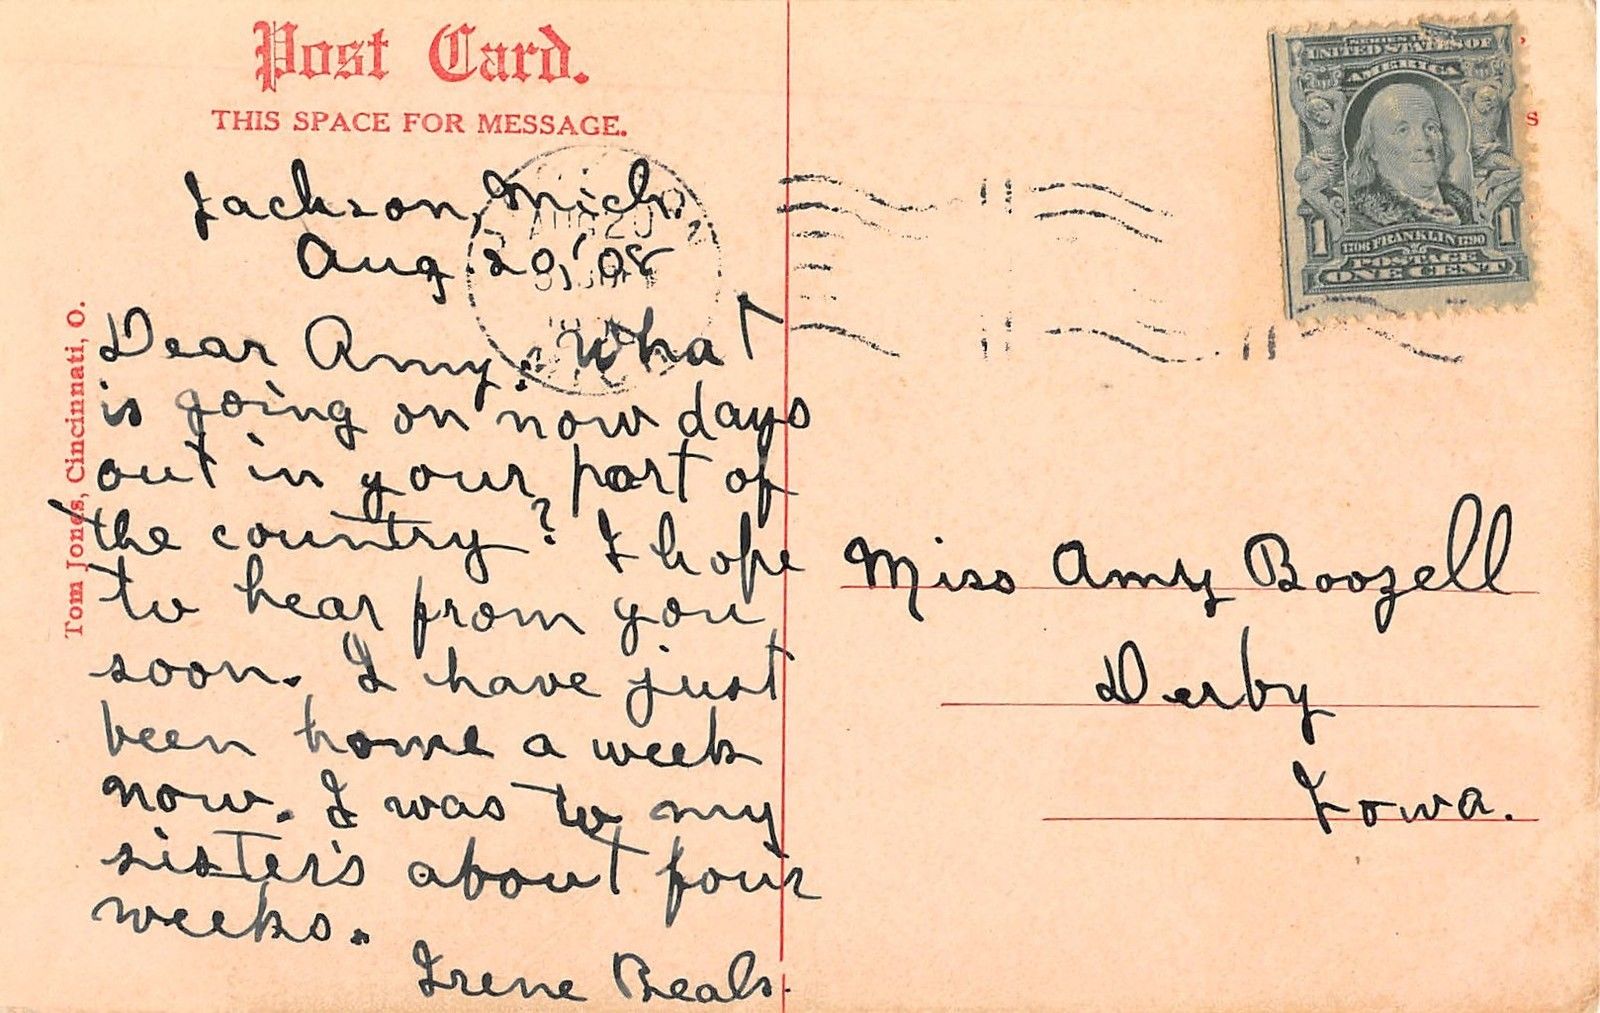 Post Card.
THIS SPACE FOR MESSAGE.
Jackson, Mich.
Aug. 20, '08
Dear Amy:. What
is going on now days
out in your part of
the country? I hope
to hear from you
soon. I have just
been home a week
now. I was to my
sister's about four
weeks.
Irene Beals.
Tom Jones, Cincinnati, O.
UNITED STATES OF
AMERICA
1 1
1706 FRANKLIN 1790
POSTAGE
ONE CENT
S
Miss Amy Boozell
Derby
Iowa.